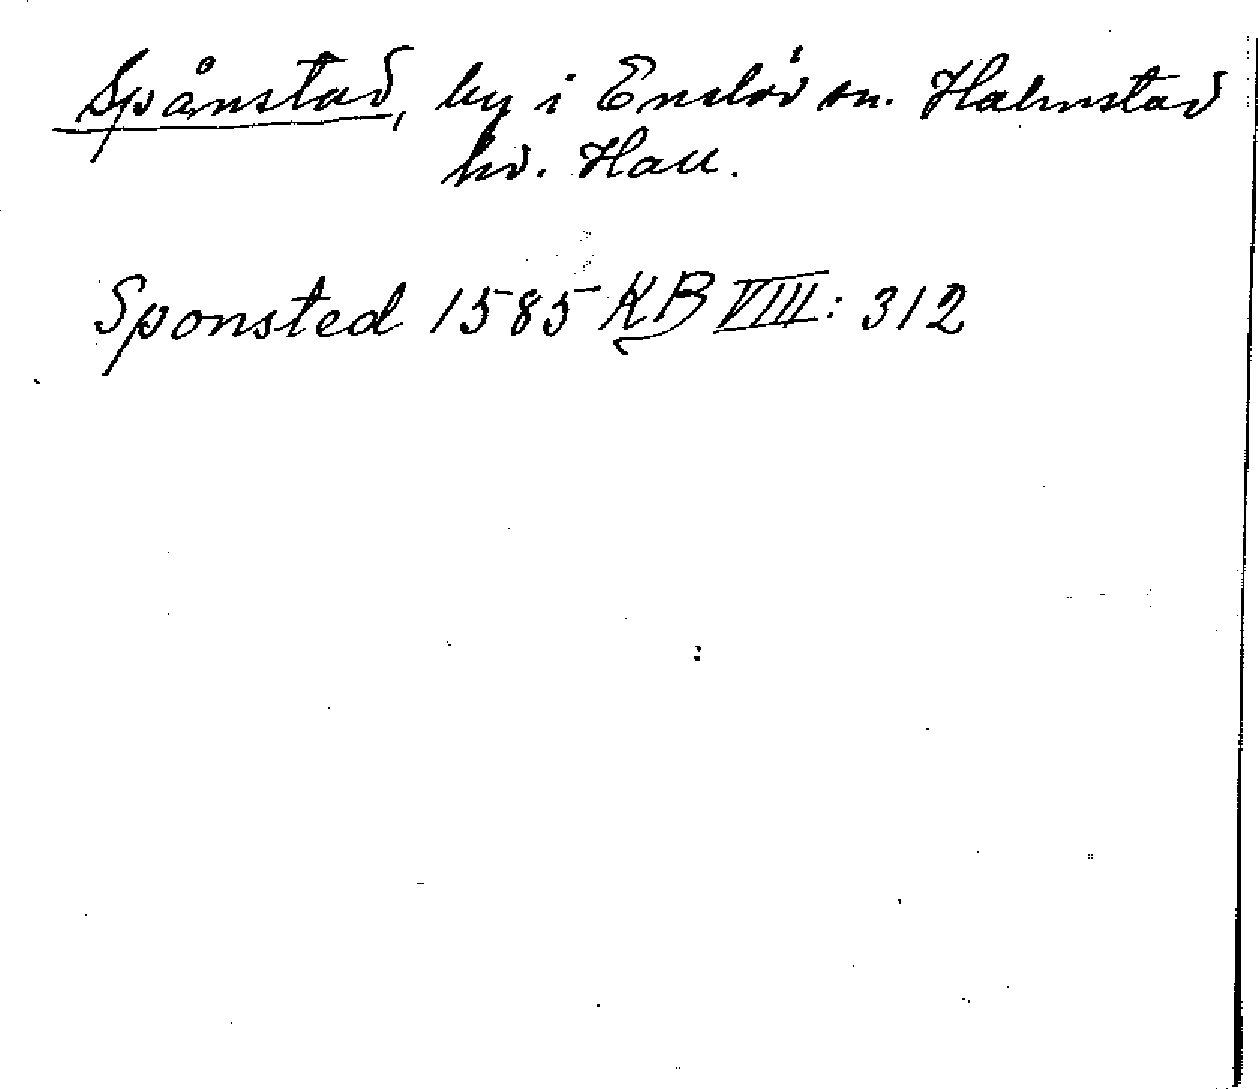 Spånstad, by i Enslöv sn. Halmstad
hd. Hall.
Sponsted 1585 KB VIII: 312